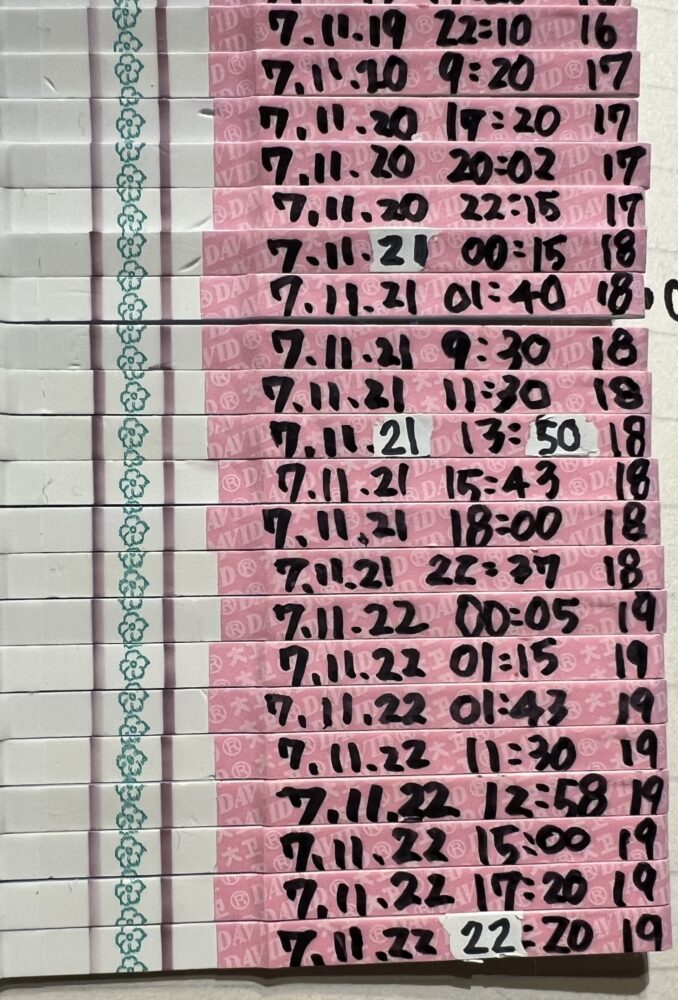 7.11.19 22:10 16
7.11.20 9:20 17
7.11.20 17:20 17
7.11.20 20:02 17
7.11.20 22:15 17
7.11.21 00:15 18
7.11.21 01:40 18
7.11.21 9:30 18
7.11.21 11:30 18
7.11.21 13:50 18
7.11.21 15:43 18
7.11.21 18:00 18
7.11.21 22:37 18
7.11.22 00:05 19
7.11.22 01:15 19
7.11.22 01:43 19
7.11.22 11:30 19
7.11.22 12:58 19
7.11.22 15:00 19
7.11.22 17:20 19
7.11.22 22:20 19